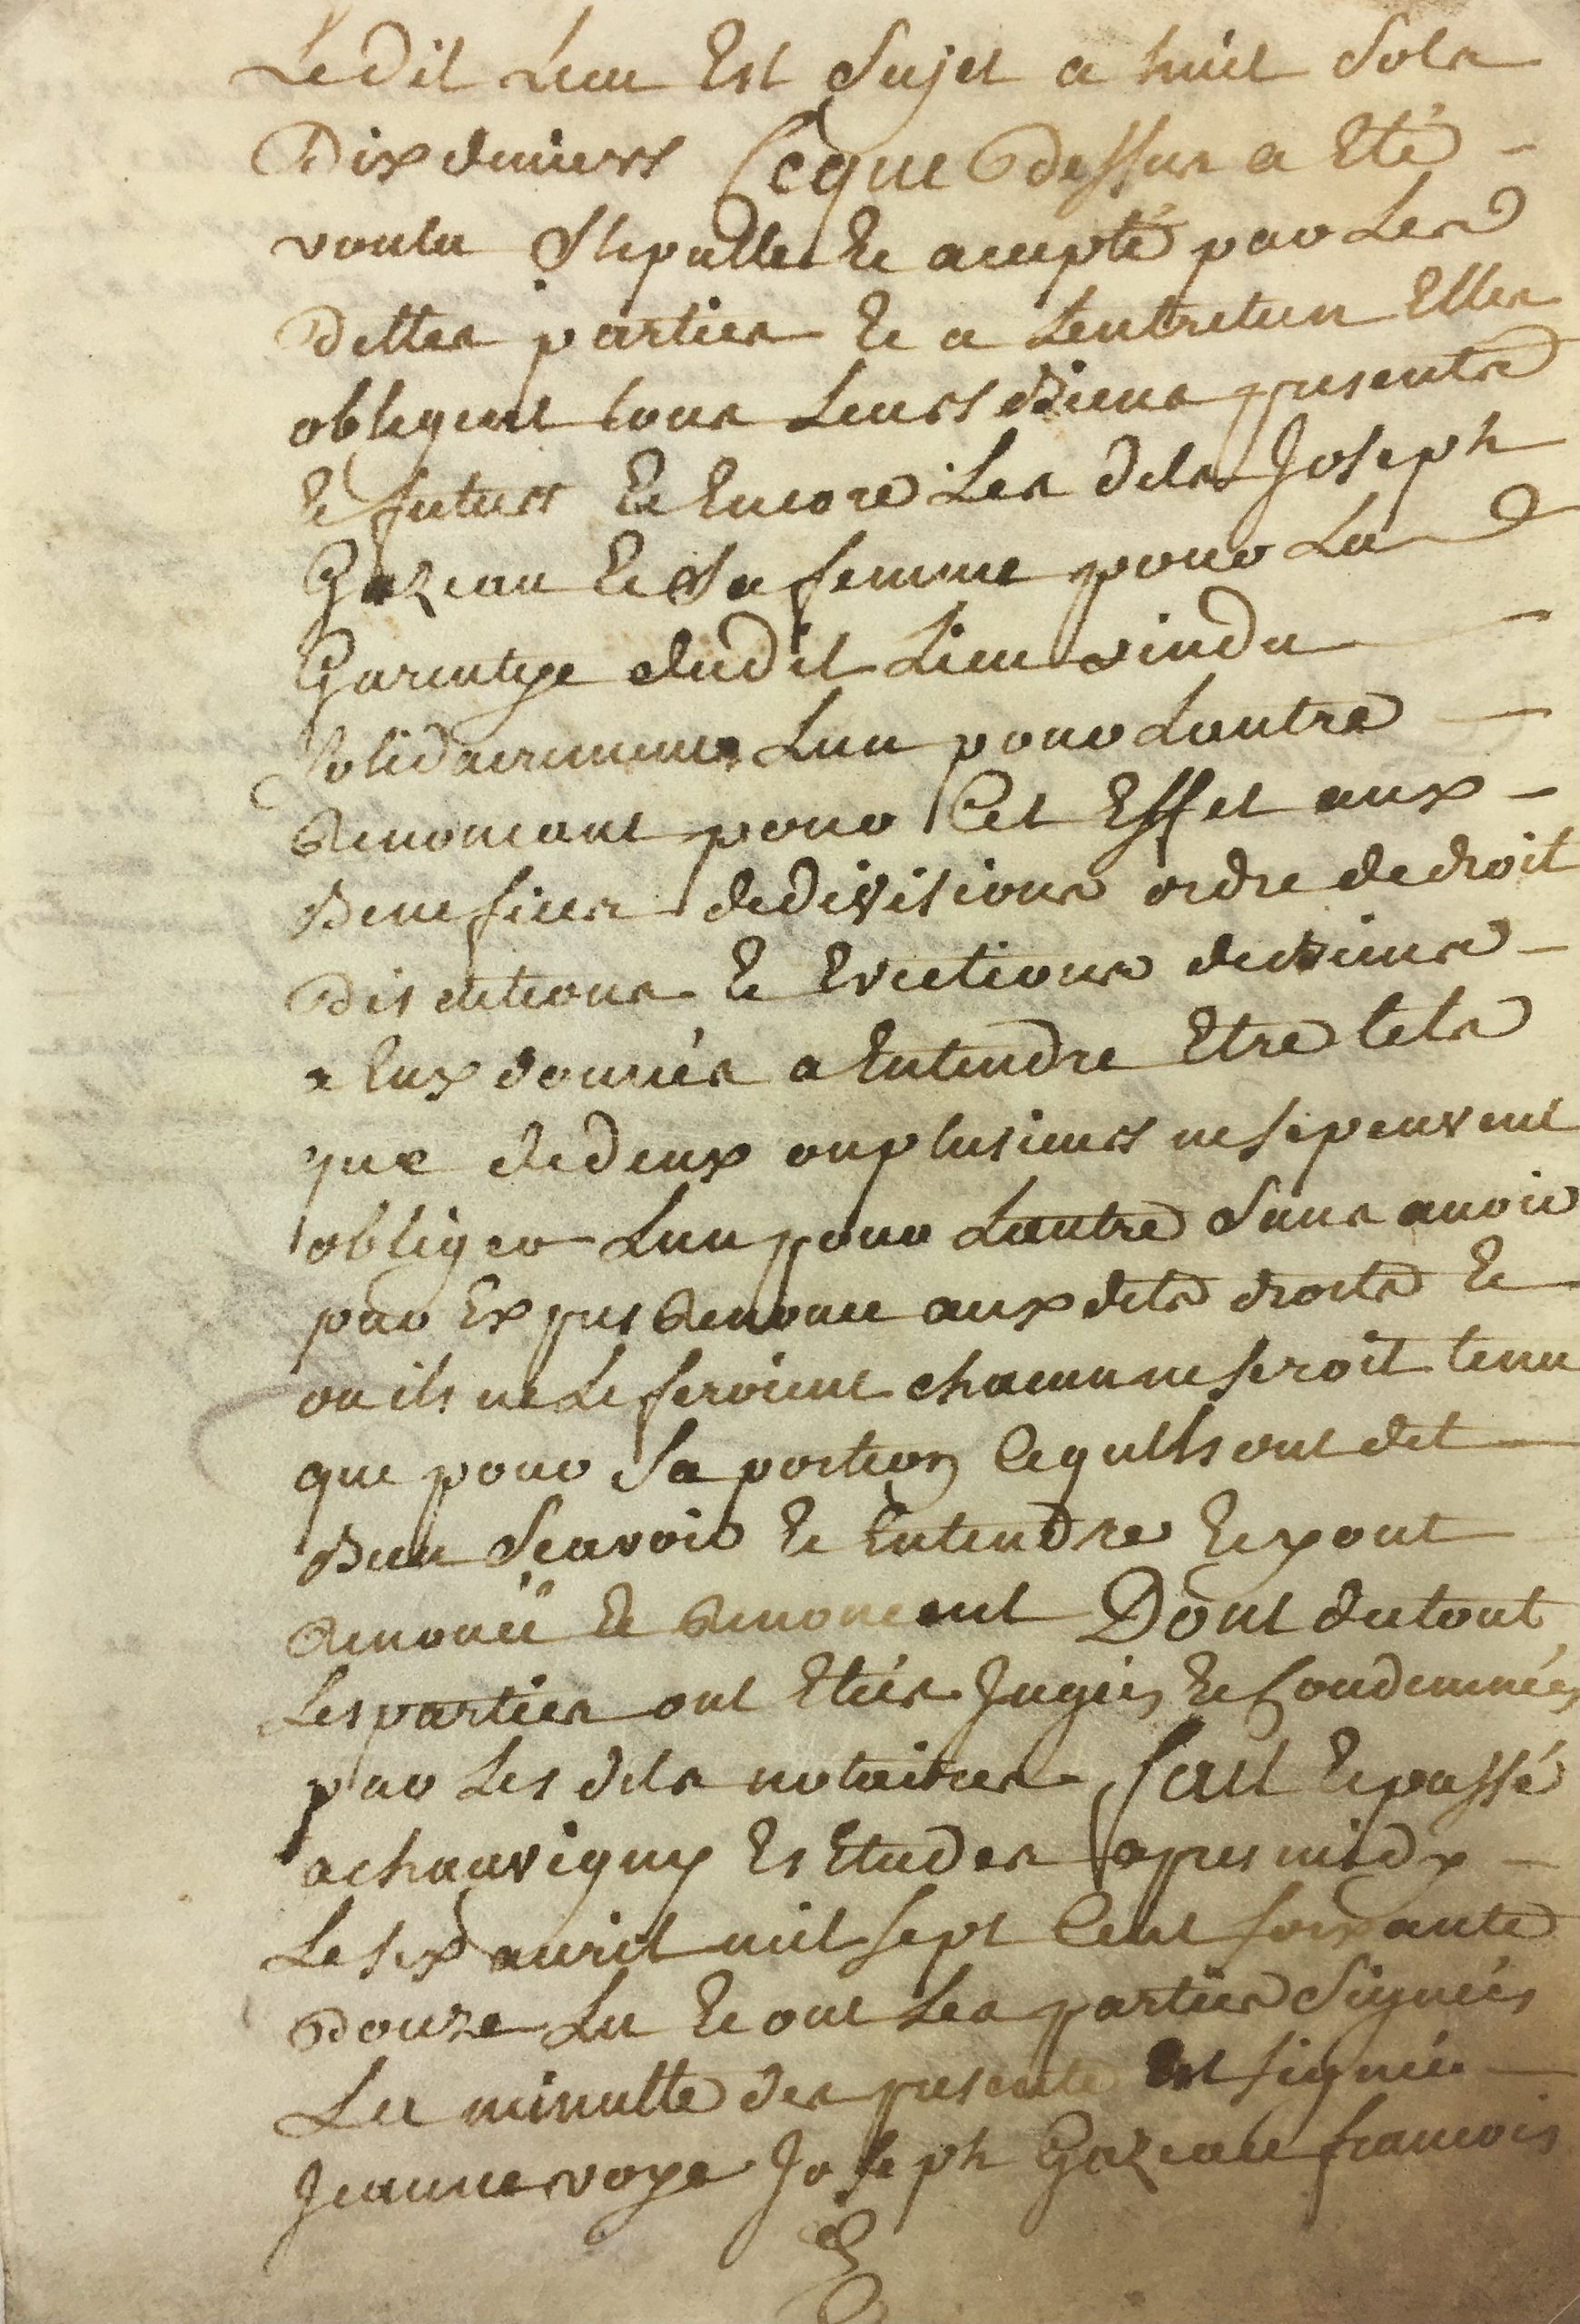 Ledit Lieu Est Sujet a huit Sols
Dix deniers Ceque dessus a Eté
voulu Stipullé Et accepté par Les
dittes parties Et a Lentretien Elles
obligent tous Leurs Biens presents
Et futurs Et Encore Les dits Joseph
Gazeau Et Sa femme pour La
Garentye dudit Lieu vendu
Solidairement Lun pour Lautre
Renoncant pour Cet Effet aux
Benefices dedivisions ordre dedroit
Discutions Et Evictions de biens
a Eux donnés a Entendre Etre tels
que dedeux ouplusieurs nesepeuvent
obliger Lun pour Lautre Sans avoir
par Expres Renoncé auxdits droits Et
ou ils neLeferoient chacun neseroit tenu
que pour Sa portion Cequils ont dit
Bien Scavoir Et Entendre Et y ont
Renoncé Et Renoncent Dont dutout
Lesparties ont Etées Jugées Et Condemnées
par Les dits notaires fait Et passé
achauvigny Es Etudes apres midy
Lesix avril mil sept Cent soixante
douze Lu Et ont Les parties Signées
La minutte des presente Est signée
Jeanne voye Joseph Gazeau francois